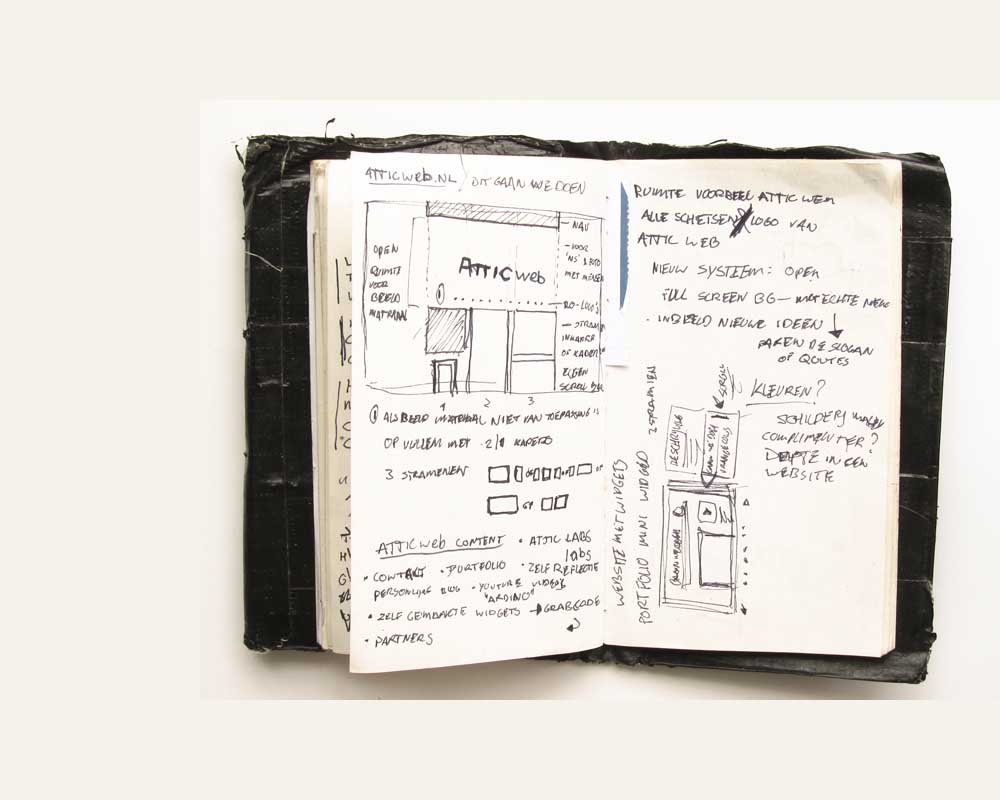 ATTICWEB.NL / DIT GAAN WE DOEN
OPEN
RUIMTE
VOOR
BEELD
MATRIAAL
ATTICWEB
NAV
VOOR
MET MENSEN
RO-LOGO'S
STRAM
INKADER
OF KADER
EIGEN
SCROLL BAR
1 2 3
① ALS BEELD MATERIAAL NIET VAN TOEPASSING IS
OP VULLEN MET 2/1 KADERS
3 STRAMIENEN
OF
OF
ATTICWEB CONTENT
• ATTIC LABS
labs
• CONTACT • PORTFOLIO • ZELF REFLECTIE
PERSONLIJKE BLOG • YOUTUBE VIDEO'S
"ARDINO"
• ZELF GEMAAKTE WIDGETS → GRABCODE
• PARTNERS
RUIMTE VOORBEEL ATTIC WEB
ALLE SCHETSEN LOGO VAN
ATTIC WEB
NIEUW SYSTEEM: OPEN
FULL SCREEN BG — MET ECHTE
• INBEELD NIEUWE IDEEN
PAREN DE SLOGAN
OF QOUTES
KLEUREN?
SCHILDERIJ
COMPLIMENTER?
DEPTE IN EEN
WEBSITE
WEBSITE MET WIDGETS
PORTFOLIO MINI WIDGED
2 STRAMIEN
BESCHRIJVING
SCROLL